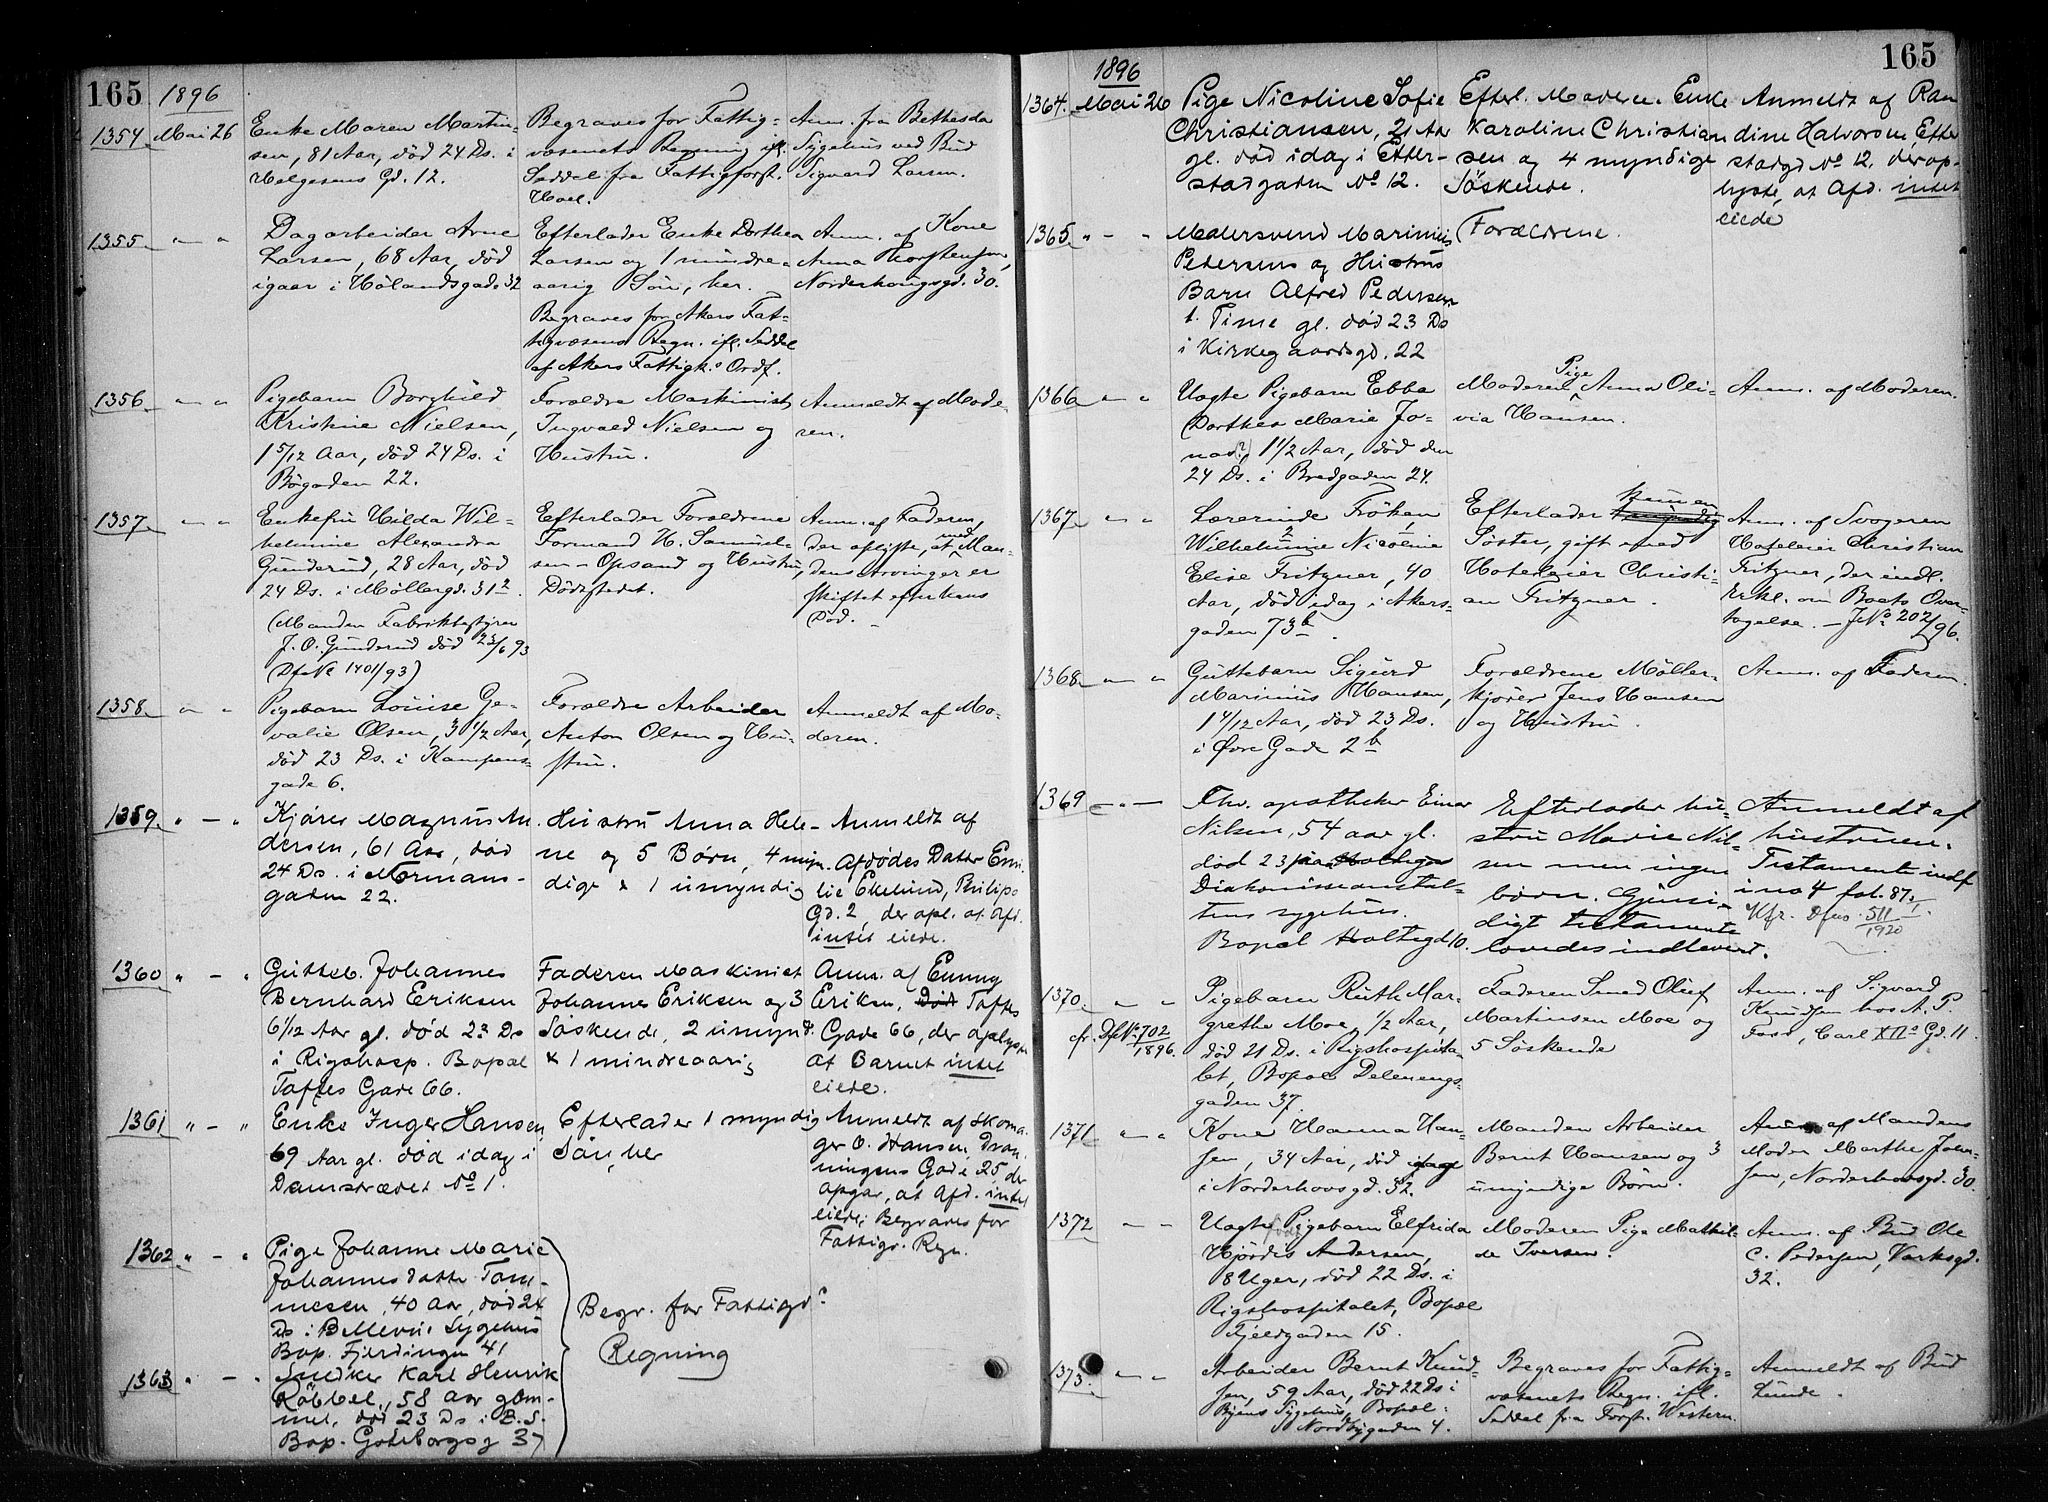 165
1896
1354. Mai 26
Enke Maren Martin-
sen, 81 Aar, död 24 Ds. i
Helgesens Gd. 12.
Begraves for Fattig-
væsenets Regning ifl.
Seddel fra Fattigforst.
Hoel.
Anm. fra Bethesda
Sygehus ved Bud
Sigvard Larsen.
1355. " - "
Dagarbeider Arne
Larsen, 68 Aar, död
igaar i Hölandsgade 32
Efterlader Enke Dorthea
Larsen og 1 mindre-
aarig Sön, her.
Begraves for Akers Fat-
tigvæsens Regn. ifl. Seddel
af Akers Fattigk.s Ordf.
Anm. af Kone
Anna Thorstensen,
Norderhougsgd. 30.
1356. " - "
Pigebarn Borghild
Kristine Nielsen,
1 5/12 Aar, död 24 Ds. i
Bögaden 22.
Forældre Maskinist
Ingvald Nielsen og
Hustru.
Anmeldt af Mode-
ren.
1357. " - "
Enkefru Hilda Wil-
helmine Alexandra
Gunderud, 28 Aar, död
24 Ds. i Möllergd. 31 2.
(Manden Fabrikbestyrer
J. O. Gunderud död 23/6 93
Df No 1401/93)
Efterlader Forældrene
Formand H. Samuel-
sen-Opsand og Hustru,
Dödsstedet.
Anm. af Faderen,
der oplyste, at med Man-
dens Arvinger er
skiftet efter hans
Död. -
1358. " - "
Pigebarn Louise Ge-
valie Olsen, 3 1/2 Aar,
död 23 Ds. i Kampens-
gade 6.
Forældre Arbeider
Anton Olsen og Hu-
stru.
Anmeldt af Mo-
deren.
1359. " - "
Kjörer Magnus An-
dersen, 61 Aar, död
24 Ds. i Normans-
gaden 22.
Hustru Anna Hele-
ne og 5 Börn, 4 myn-
dige & 1 umyndig
Anmeldt af
Afdödes Datter Emi-
lie Ekelund, Philips
Gd. 2, der opl. at Afd.
intet eiede.
1360 " - "
Gutteb. Johannes
Bernhard Eriksen
6/12 Aar gl. död 23 Ds
i Rigshosp. Bopæl
Toftes Gade 66.
Faderen Maskinist
Johannes Eriksen og 3
Söskende, 2 umynd.
& 1 mindreaarig
Anm. af Emmy
Eriksen, Död Toftes
Gade 66, der oplyste
at Barnet intet
eiede.
1361 " - "
Enke Inger Hansen,
69 Aar gl. död idag i
Damstrædet No 1.
Efterlader 1 myndig
Sön, her
Anmeldt af Skoma-
ger O. Hansen, Dron-
ningens Gade 25, der
opgav, at Afd. intet
eiede; Begraves for
Fattigv. Regn.
1362 " - "
Pige Johanne Marie
Johannesdatter Tom-
mesen, 40 Aar, död 24
Ds i Bellevue Sygehus
Bop. Fjerdingen 41
1363 " - "
Snedker Karl Henrik
Röbbel, 58 Aar gam-
mel, död 23 Ds i B.S.
Bop. Göteborgsg 37
Begr. for Fattigv.s
Regning
165
1896
1364. Mai 26
Pige Nicoline Sofie
Christiansen, 21 Aar
gl. död idag i Etter-
stadgaden No 12.
Efterl. Moderen. Enke
Karoline Christian
sen og 4 myndige
Söskende.
Anmeldt af Ran
dine Halvorsen, Etter
stadgd No 12. der op-
lyste, at Afd. intet
eiede
1365. " - "
Malersvend Marinius
Pedersens og Hustrus
Barn Alfred Pedersen,
1. Time gl. död 23 Ds
i Kirkegaardsgd. 22
Forældrene.
1366 " - "
Uægte Pigebarn Ebba
Dorthea Marie Jo-
nad(?), 1 1/2 Aar, död den
24 Ds. i Bredgaden 24.
Moderen Pige Anna Oli-
via Hansen.
Anm. af Moderen.
1367. " - "
Lærerinde Fröken
Wilhelmine Nicoline
Elise Fritzner, 40
Aar, död idag i Akers-
gaden 73 b.
Efterlader kun en
Söster, gift med
Hoteleier Christi-
an Fritzner.
Anm. af Svogeren
Hoteleier Christian
Fritzner, der indl.
Erkl. om Boets Over-
tagelse. - J No 202/96.
1368. " - "
Guttebarn Sigurd
Marinius Hansen,
1 4/12 Aar, död 23 Ds.
i Övre Gade 2 b
Forældrene Möller-
kjörer Jens Hansen
og Hustru.
Anm. af Faderen.
1369 - " -
Fhv. apotheker Einar
Nilsen, 54 aar gl.
död 23 paa Holtegae
Diakonisseanstal-
tens sygehus.
Bopæl Holtegd 10.
Efterlader hu-
stru Marie Nil-
sen men ingen
börn. Gjensi-
digt testamente
lovedes indlevert.
Anmeldt af
hustruen.
Testamente indf
i no 4 fol. 87.
Kfr. Dfno. 511/1920.
1370. " "
cfr. Df No 702/1896.
Pigebarn Ruth Mar-
grethe Moe, 1/2 Aar,
död 21 Ds. i Rigshospita-
let, Bopæl Delenengs-
gaden 37.
Faderen Smed Oluf
Martinsen Moe og
5 Söskende
Anm. af Sigvard
Knudsen hos A. P.
Foss, Carl XII.s Gd. 11.
1371 " - "
Kone Hanna Han-
sen, 34 Aar, död idag
i Norderhovsgd. 32.
Manden Arbeider
Bernt Hansen og 3
umyndige Börn.
Anm af Mandens
Moder Marthe Johan-
sen, Norderhovsgd. 30.
1372 - -
Uægte Pigebarn Elfrida
Hjördis Andersen,
8 Uger, död 22 Ds. i
Rigshospitalet, Bopæl
Fjeldgaden 15.
Moderen Pige Mathil-
de Iversen.
Anm. af Bud Ole
C. Pedersen, Værksgd.
32.
1373. " - "
Arbeider Bernt Knud-
sen, 59 Aar, död 22 Ds i
Byens Sygehus, Bopæl:
Nordbygaden 4.
Begraves for Fattig-
væsenets Regn. ifl.
Seddel fra Forst. Western.
Anmeldt af Bud
Lunde.